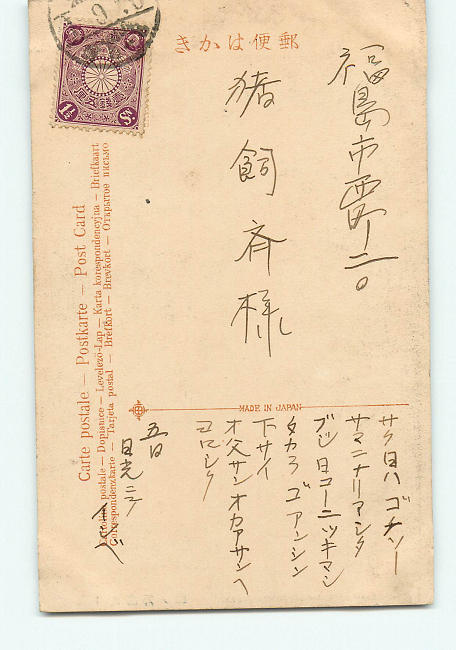 郵便はかき
1½ Sn
福島市
猪飼斉様
Carte postale — Postkarte — Post Card
postale — Dopisnice — Levelező-Lap — Karta korespondencyjna — Briefkaart
Correspondenzkarte — Tarjeta postal — Brefkort — Brevkort — Открытое письмо
MADE IN JAPAN
サク日ハゴチソー
サマニナリアシタ
ブジ日コーニツキマシ
タカラゴアンシン
下サイ
オ父サンオカアサンヘ
ヨロシク
五日
日光ニテ